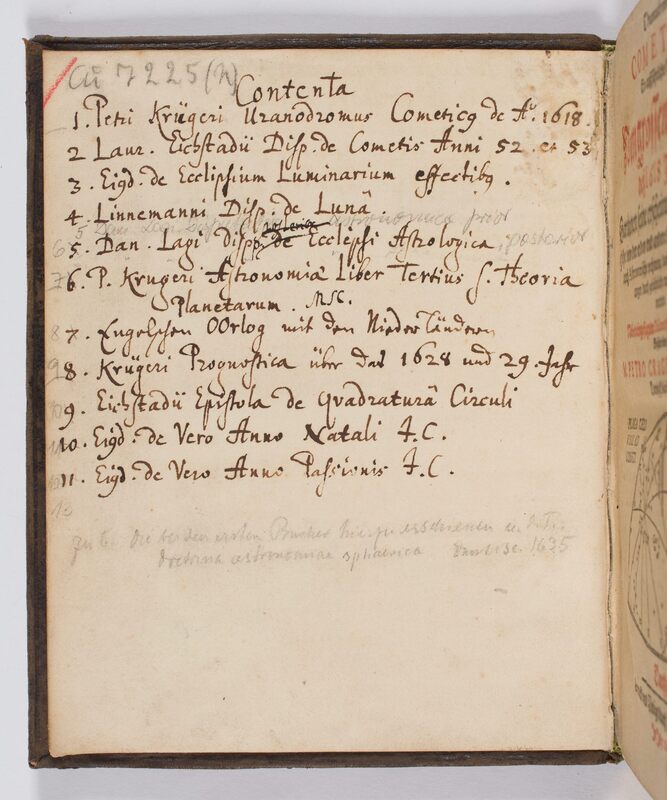 Cu 7225 (n)
Contenta
1. Petri Krügeri Uranodromus Cometicq de Aº. 1618.
2 Laur. Eichstadii Disp. de Cometis Anni 52. et 53
3. Eigd. de Ecclipsium Luminarium effectibq.
4. Linnemanni Disp. de Lunâ.
5 Dan. Lagi astronomica prior
6 5. Dan. Lagi Disp. de Ecclepsi Astrologica, posterior
7 6. P. Krugeri Astronomiæ Liber Tertius s. Theoria
Planetarum. MSC.
8 7. Engelschen OOrlog mit den Niederländeren
9 8. Krügeri Prognostica über das 1628 und 29. Jahr
10 9. Eichstadii Epistola de Quadraturâ Circuli
10. Eigd. de Vero Anno Natali J. C.
11. Eigd. de Vero Anno Passionis J. C.
13
zu 6. die beiden ersten Bücher hierzu erschienen u. d. T.:
Doctrina astronomiae sphaerica 1635
COMET
M. PETRO